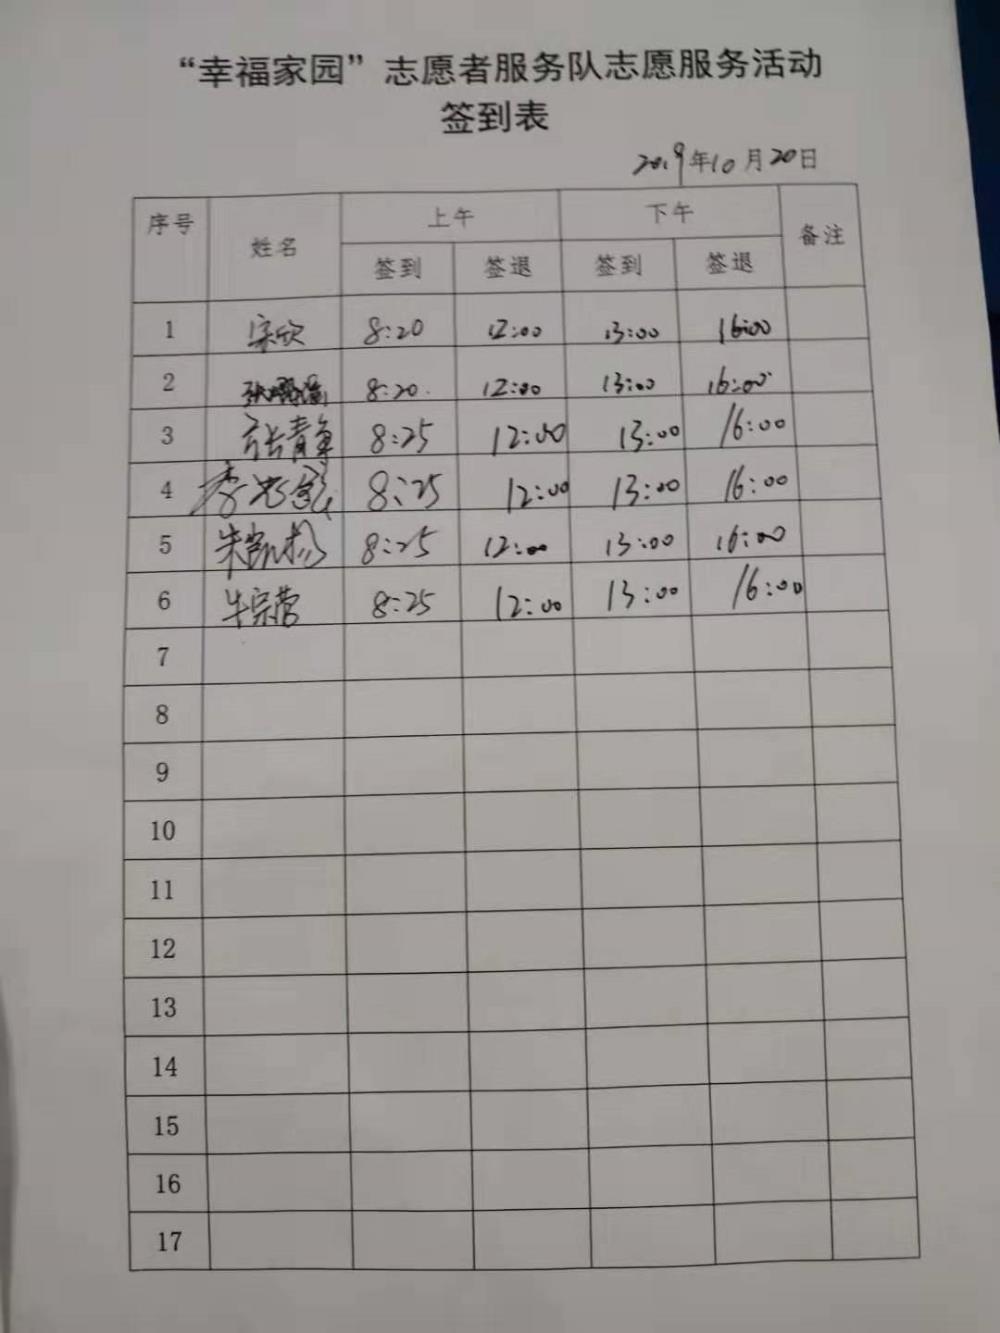 “幸福家园”志愿者服务队志愿服务活动
签到表
2019年10月20日
序号 姓名 上午 下午 备注
签到 签退 签到 签退
1 宋欣 8:20 12:00 13:00 16:00
2 8:20. 12:00 13:00 16:00
3 张青 8:25 12:00 13:00 16:00
4 李 8:25 12:00 13:00 16:00
5 朱凯杨 8:25 12:00 13:00 16:00
6 牛宗营 8:25 12:00 13:00 16:00
7
8
9
10
11
12
13
14
15
16
17